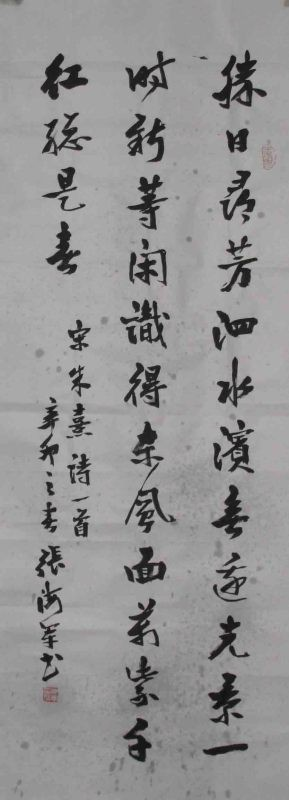 勝日尋芳泗水濱無邊光景一
時新等閑識得東風面萬紫千
紅總是春
宋朱熹詩一首
辛卯之春張海軍书